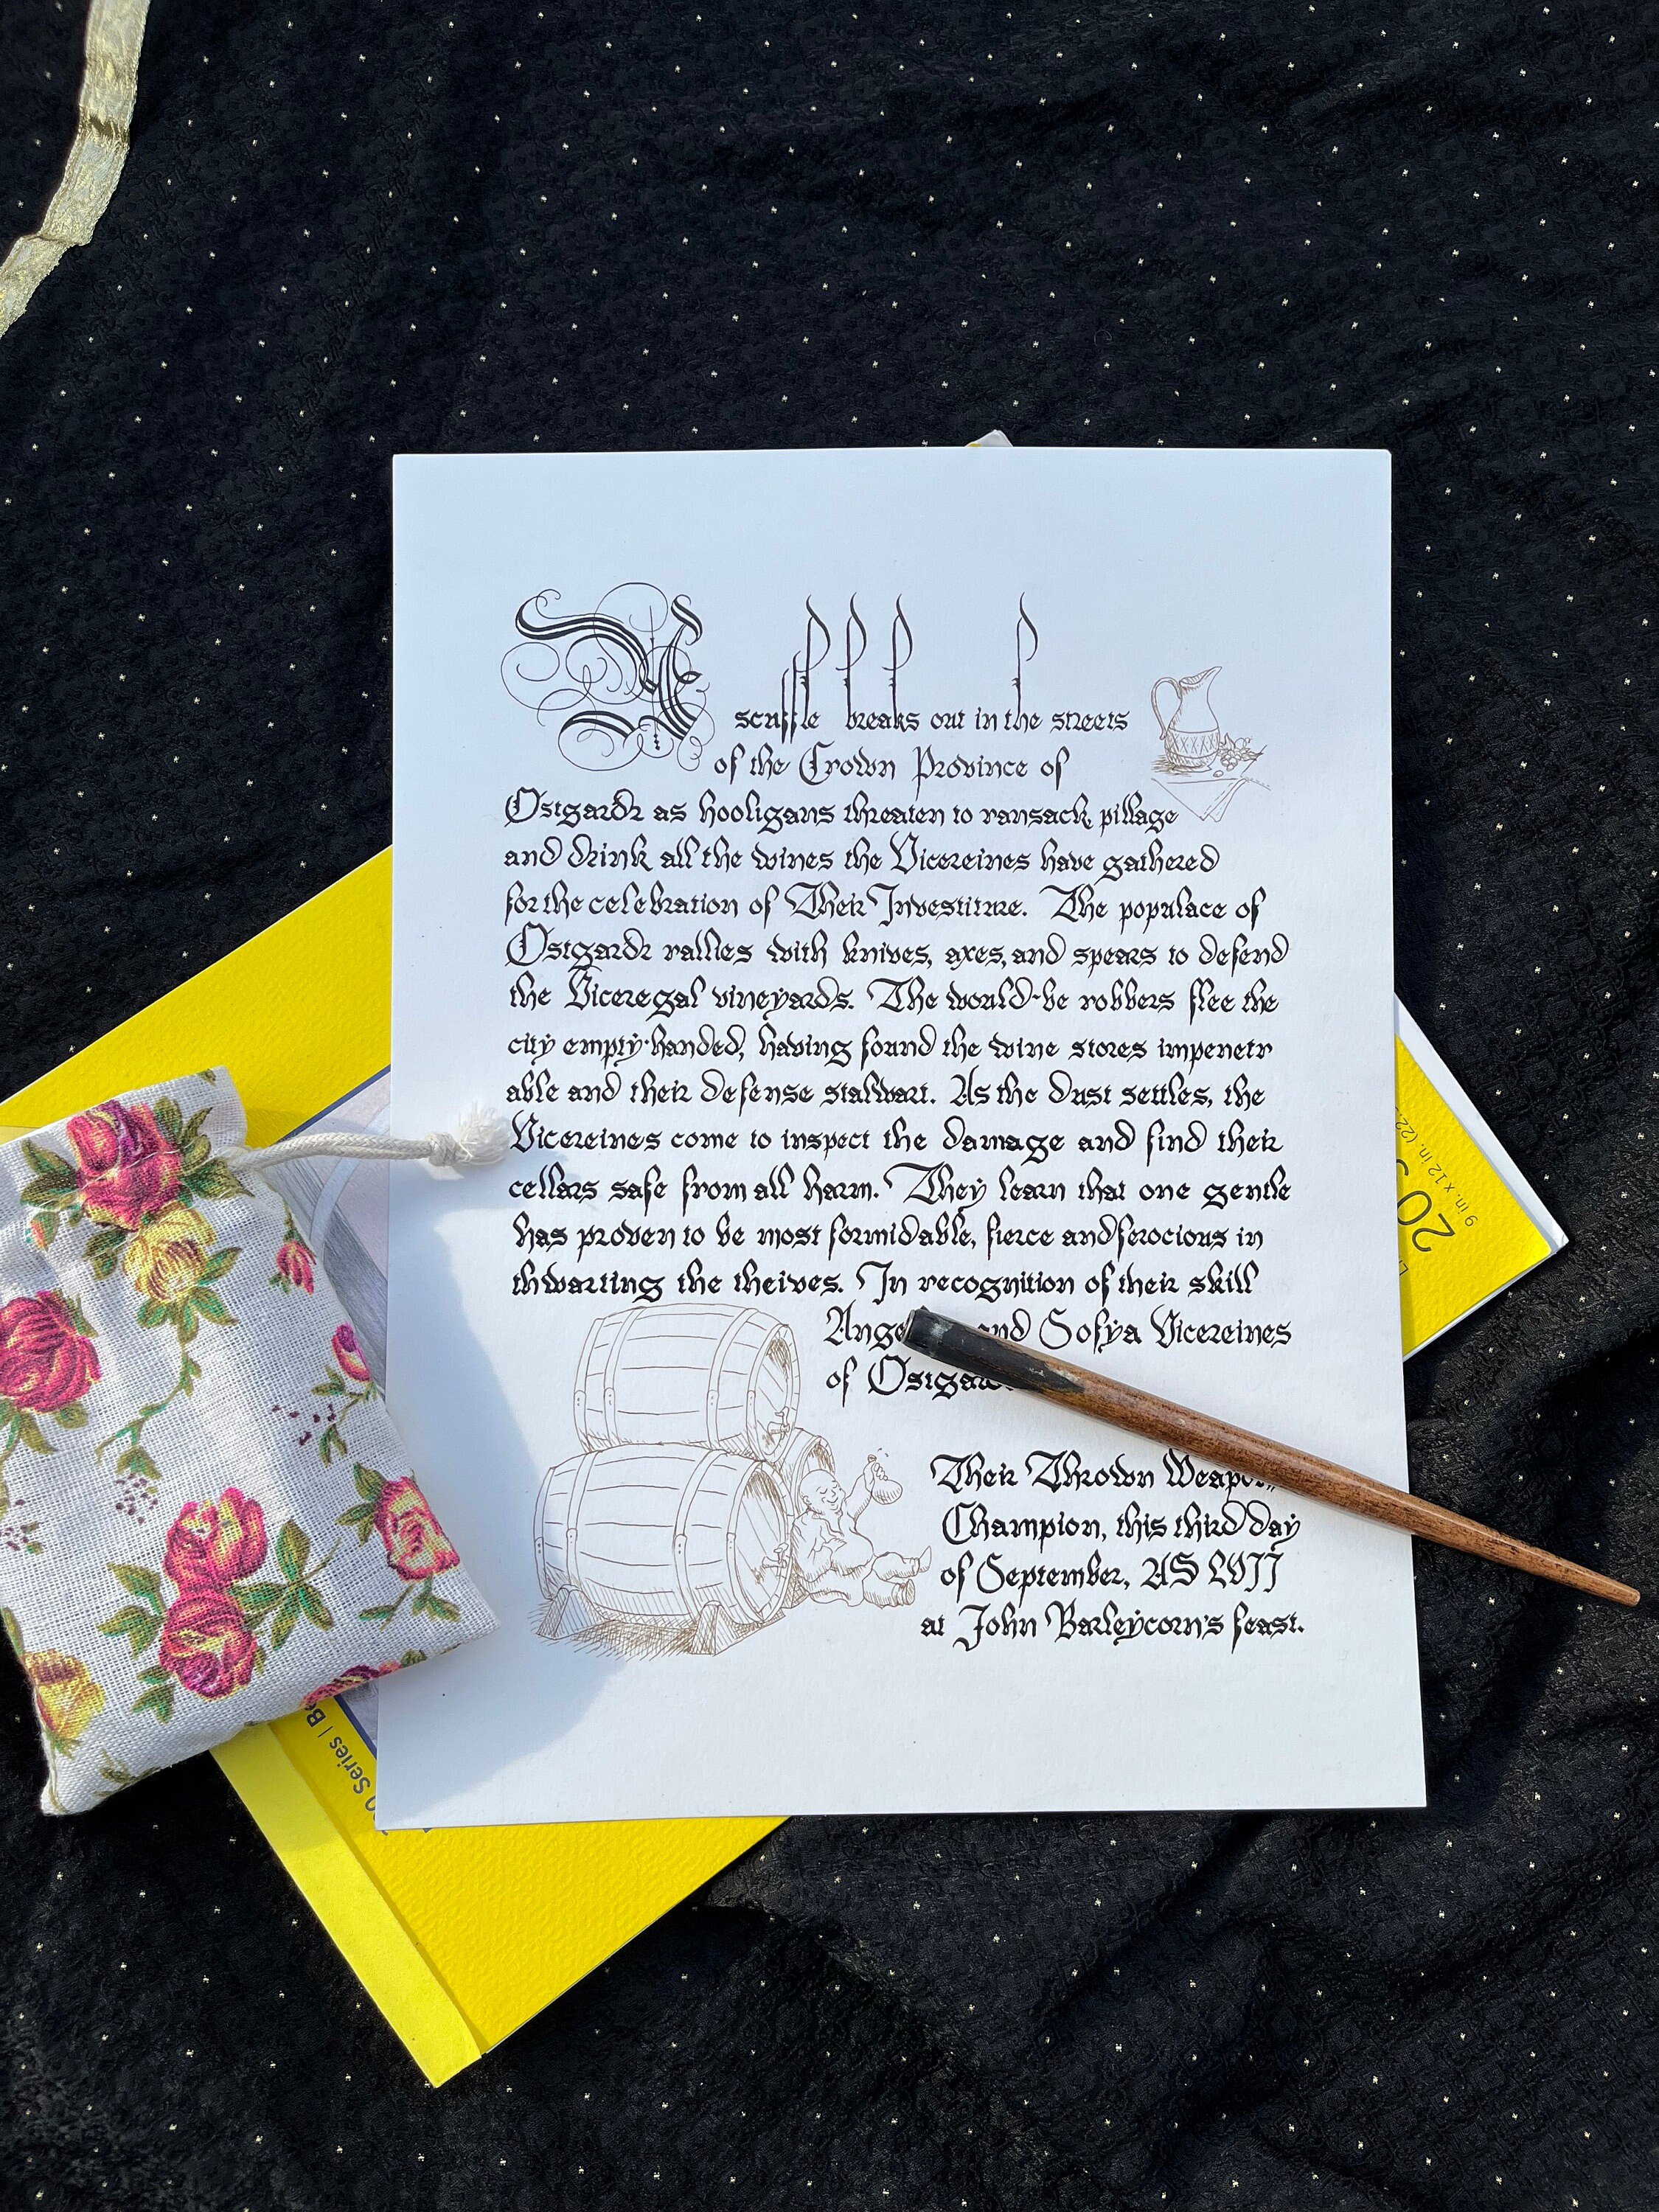 A scuffle breaks out in the streets
of the Crown Province of
Ostgardr as hooligans threaten to ransack, pillage
and drink all the wines the Vicereines have gathered
for the celebration of Their Investiture. The populace of
Ostgardr rallies with knives, axes, and spears to defend
the Viceregal vineyards. The would-be robbers flee the
city empty-handed, having found the wine stores impenetr
able and their defense stalwart. As the dust settles, the
Vicereines come to inspect the damage and find their
cellars safe from all harm. They learn that one gentle
has proven to be most formidable, fierce and ferocious in
thwarting the theives. In recognition of their skill
and Sofya Vicereines
of
Their Thrown
Champion, this third day
of September, AS LVII
at John Barleycorn's feast.
9 in. x 12 in.
Series |